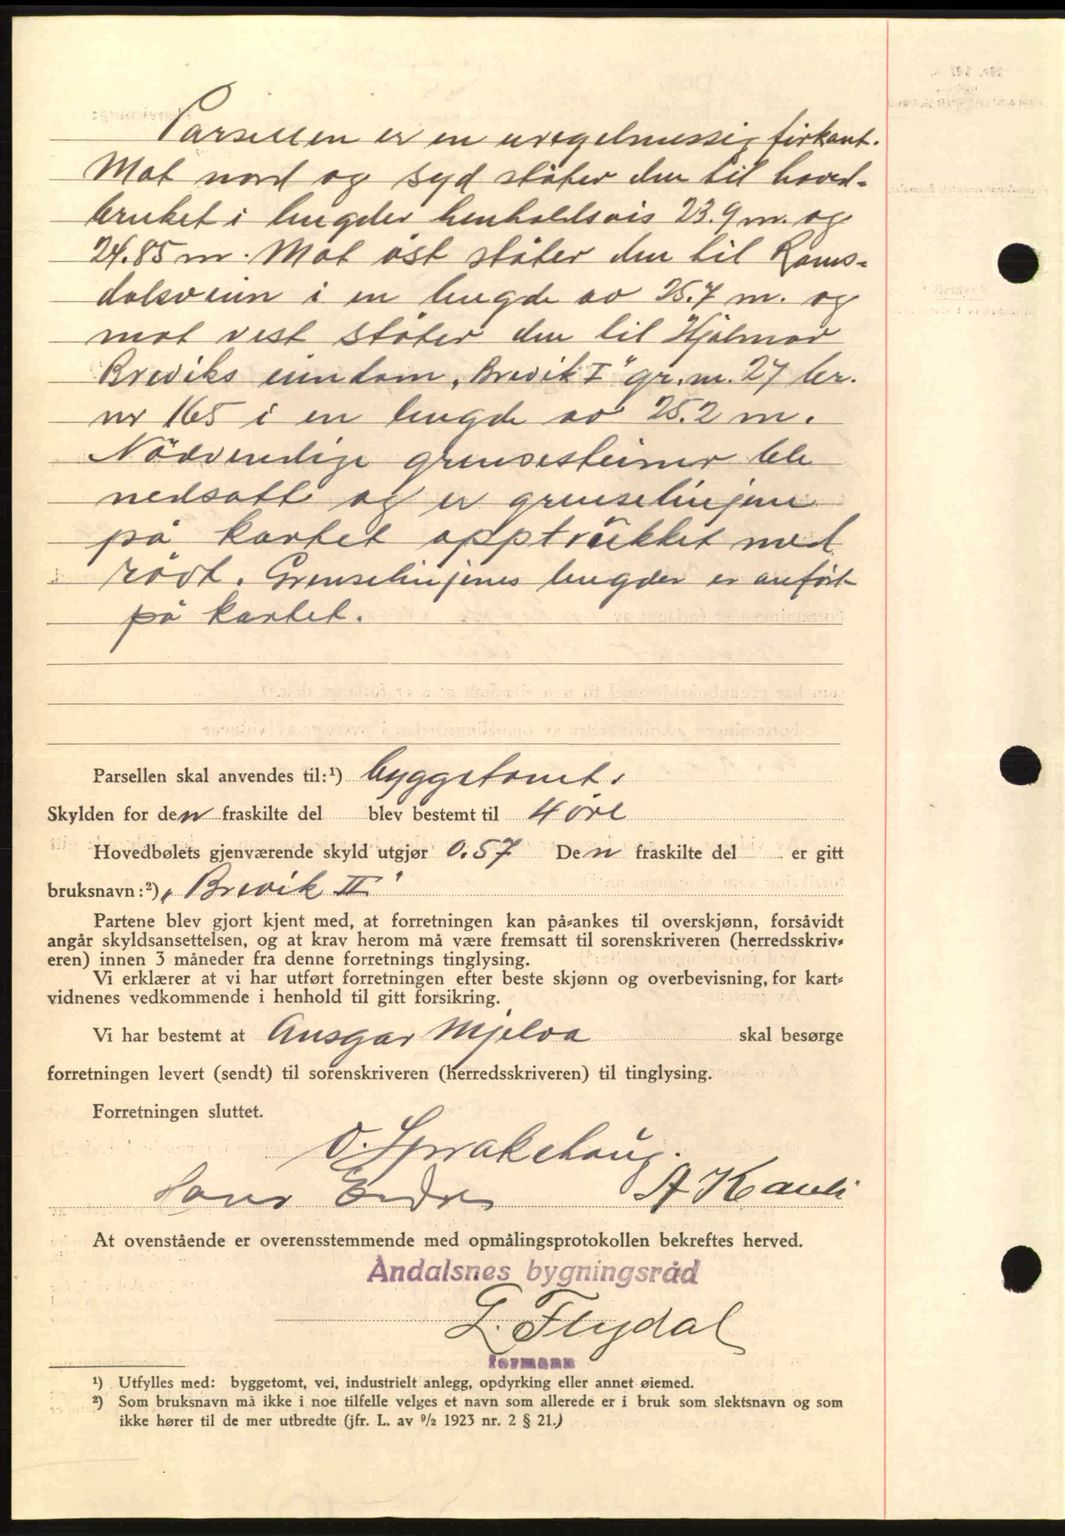 Parsellen er en uregelmessig firkant.
Mot nord og syd støter den til hoved-
bruket i lengder henholdsvis 23.9 m. og
24.85 m. Mot øst støter den til Roms-
dalsveien i en lengde av 25.7 m. og
mot vest støter den til Hjalmar
Breviks eiendom, "Brevik I" gr.nr. 27 br.
nr 165 i en lengde av 25.2 m.
Nødvendige grensesteiner ble
nedsatt og er grenselinjene
på kartet opptrukket med
rødt. Grenselinjenes lengder er anført
på kartet.
Parsellen skal anvendes til:¹) byggetomt.
Skylden for den fraskilte del blev bestemt til 4 øre
Hovedbølets gjenværende skyld utgjør 0.57 Den fraskilte del er gitt
bruksnavn:²) "Brevik II"
Partene blev gjort kjent med, at forretningen kan på-ankes til overskjønn, forsåvidt
angår skyldsansettelsen, og at krav herom må være fremsatt til sorenskriveren (herredsskriv-
eren) innen 3 måneder fra denne forretnings tinglysing.
Vi erklærer at vi har utført forretningen efter beste skjønn og overbevisning, for kart-
vidnenes vedkommende i henhold til gitt forsikring.
Vi har bestemt at Ansgar Mjelva skal besørge
forretningen levert (sendt) til sorenskriveren (herredsskriveren) til tinglysing.
Forretningen sluttet.
O. Sprakehaug.
Hans A Kavli
At ovenstående er overensstemmende med opmålingsprotokollen bekreftes herved.
Åndalsnes bygningsråd
Flydal
formann
¹) Utfylles med: byggetomt, vei, industrielt anlegg, opdyrking eller annet øiemed.
²) Som bruksnavn må ikke i noe tilfelle velges et navn som allerede er i bruk som slektsnavn og som
ikke hører til de mer utbredte (jfr. L. av 9/2 1923 nr. 2 § 21.)